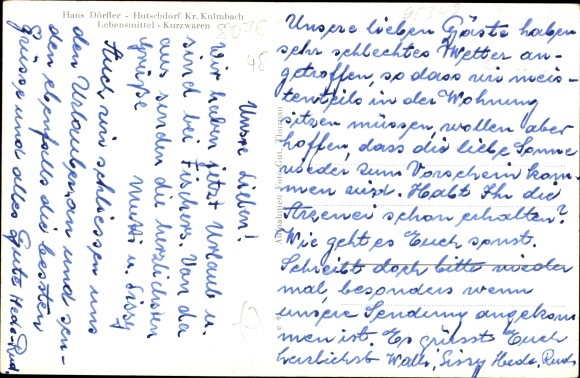 Hans Dörfler - Hutschdorf Kr. Kulmbach
Lebensmittel - Kurzwaren
Unsre Lieben!
Wir haben jetzt Urlaub u.
sind bei Fischers. Von da
aus senden die herzlichsten
Grüße Mutti u. Sissy
Auch wir schliessen uns
den Urlaubern an und sen-
den ebenfalls die besten
Grüsse und alles Gute Heda-Rud.
Unsere lieben Gäste haben
sehr schlechtes Wetter an-
getroffen, so dass wir meis-
tenteils in der Wohnung
sitzen müssen, wollen aber
hoffen, dass die liebe Sonne
wieder zum Vorschein kom-
men wird. Habt Ihr die
Arzenei schon erhalten?
Wie geht es Euch sonst.
Schreibt doch bitte wieder
mal, besonders wenn
unsere Sendung angekom
men ist. Es grüsst Euch
herzlichst Walli, Sissy Heda, Rud.
Aufnahmen Foto Gut, Thurnau